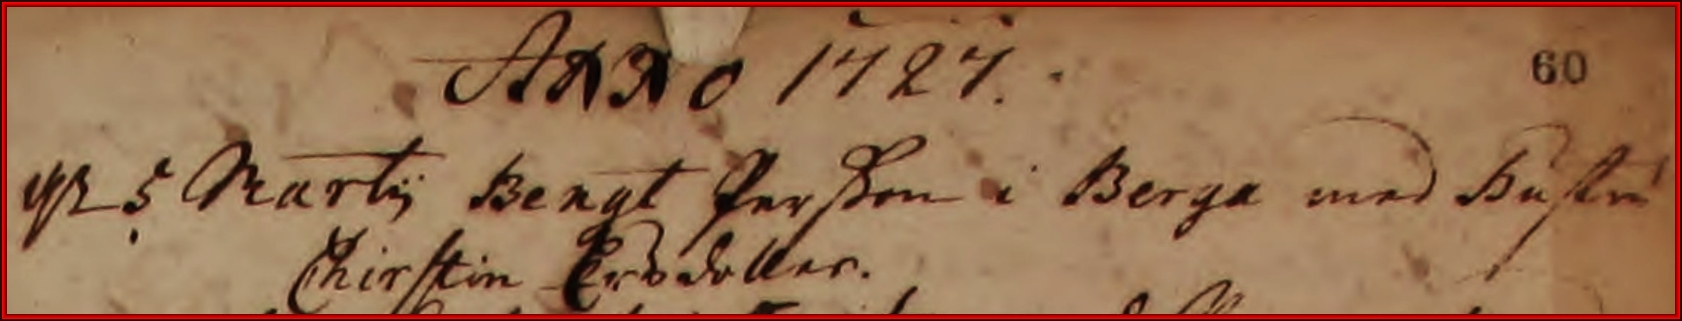 ANNO 1727.
60
5 Martij Bengt Persson i Berga med Hustru
Chirstin Ersdotter.